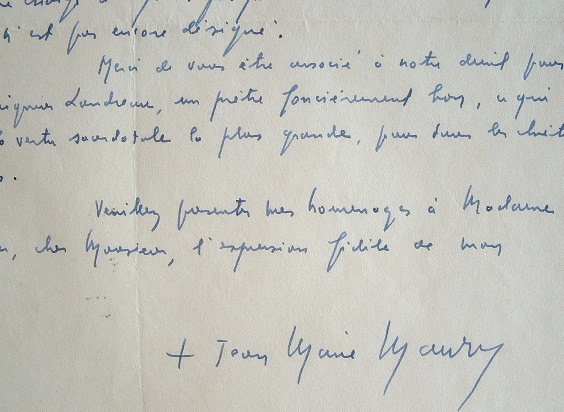 n'est pas encore désigné.
Merci de vous être associé à notre deuil pour
Landreau, un prêtre foncièrement bon, a qui
vertu sacerdotale la plus grande, pour tous les
Veuillez présenter mes hommages à Madame
, cher Monsieur, l'expression fidèle de mon
+ Jean Marie Maury